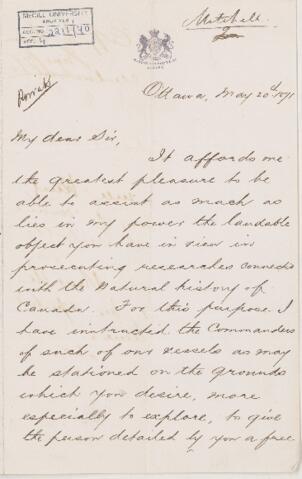 McGILL UNIVERSITY
ARCHIVES
ACC. NO. 2211/90
REF. 4
Mitchell
Private
Ottawa, May 20th 1871
My dear Sir,
It affords me
the greatest pleasure to be
able to assist as much as
lies in my power the laudable
object you have in view in
prosecuting researches connected
with the Natural history of
Canada. For this purpose I
have instructed the Commanders
of such of our vessels as may
be stationed on the grounds
which you desire, more
especially to explore, to give
the person detailed by you a free